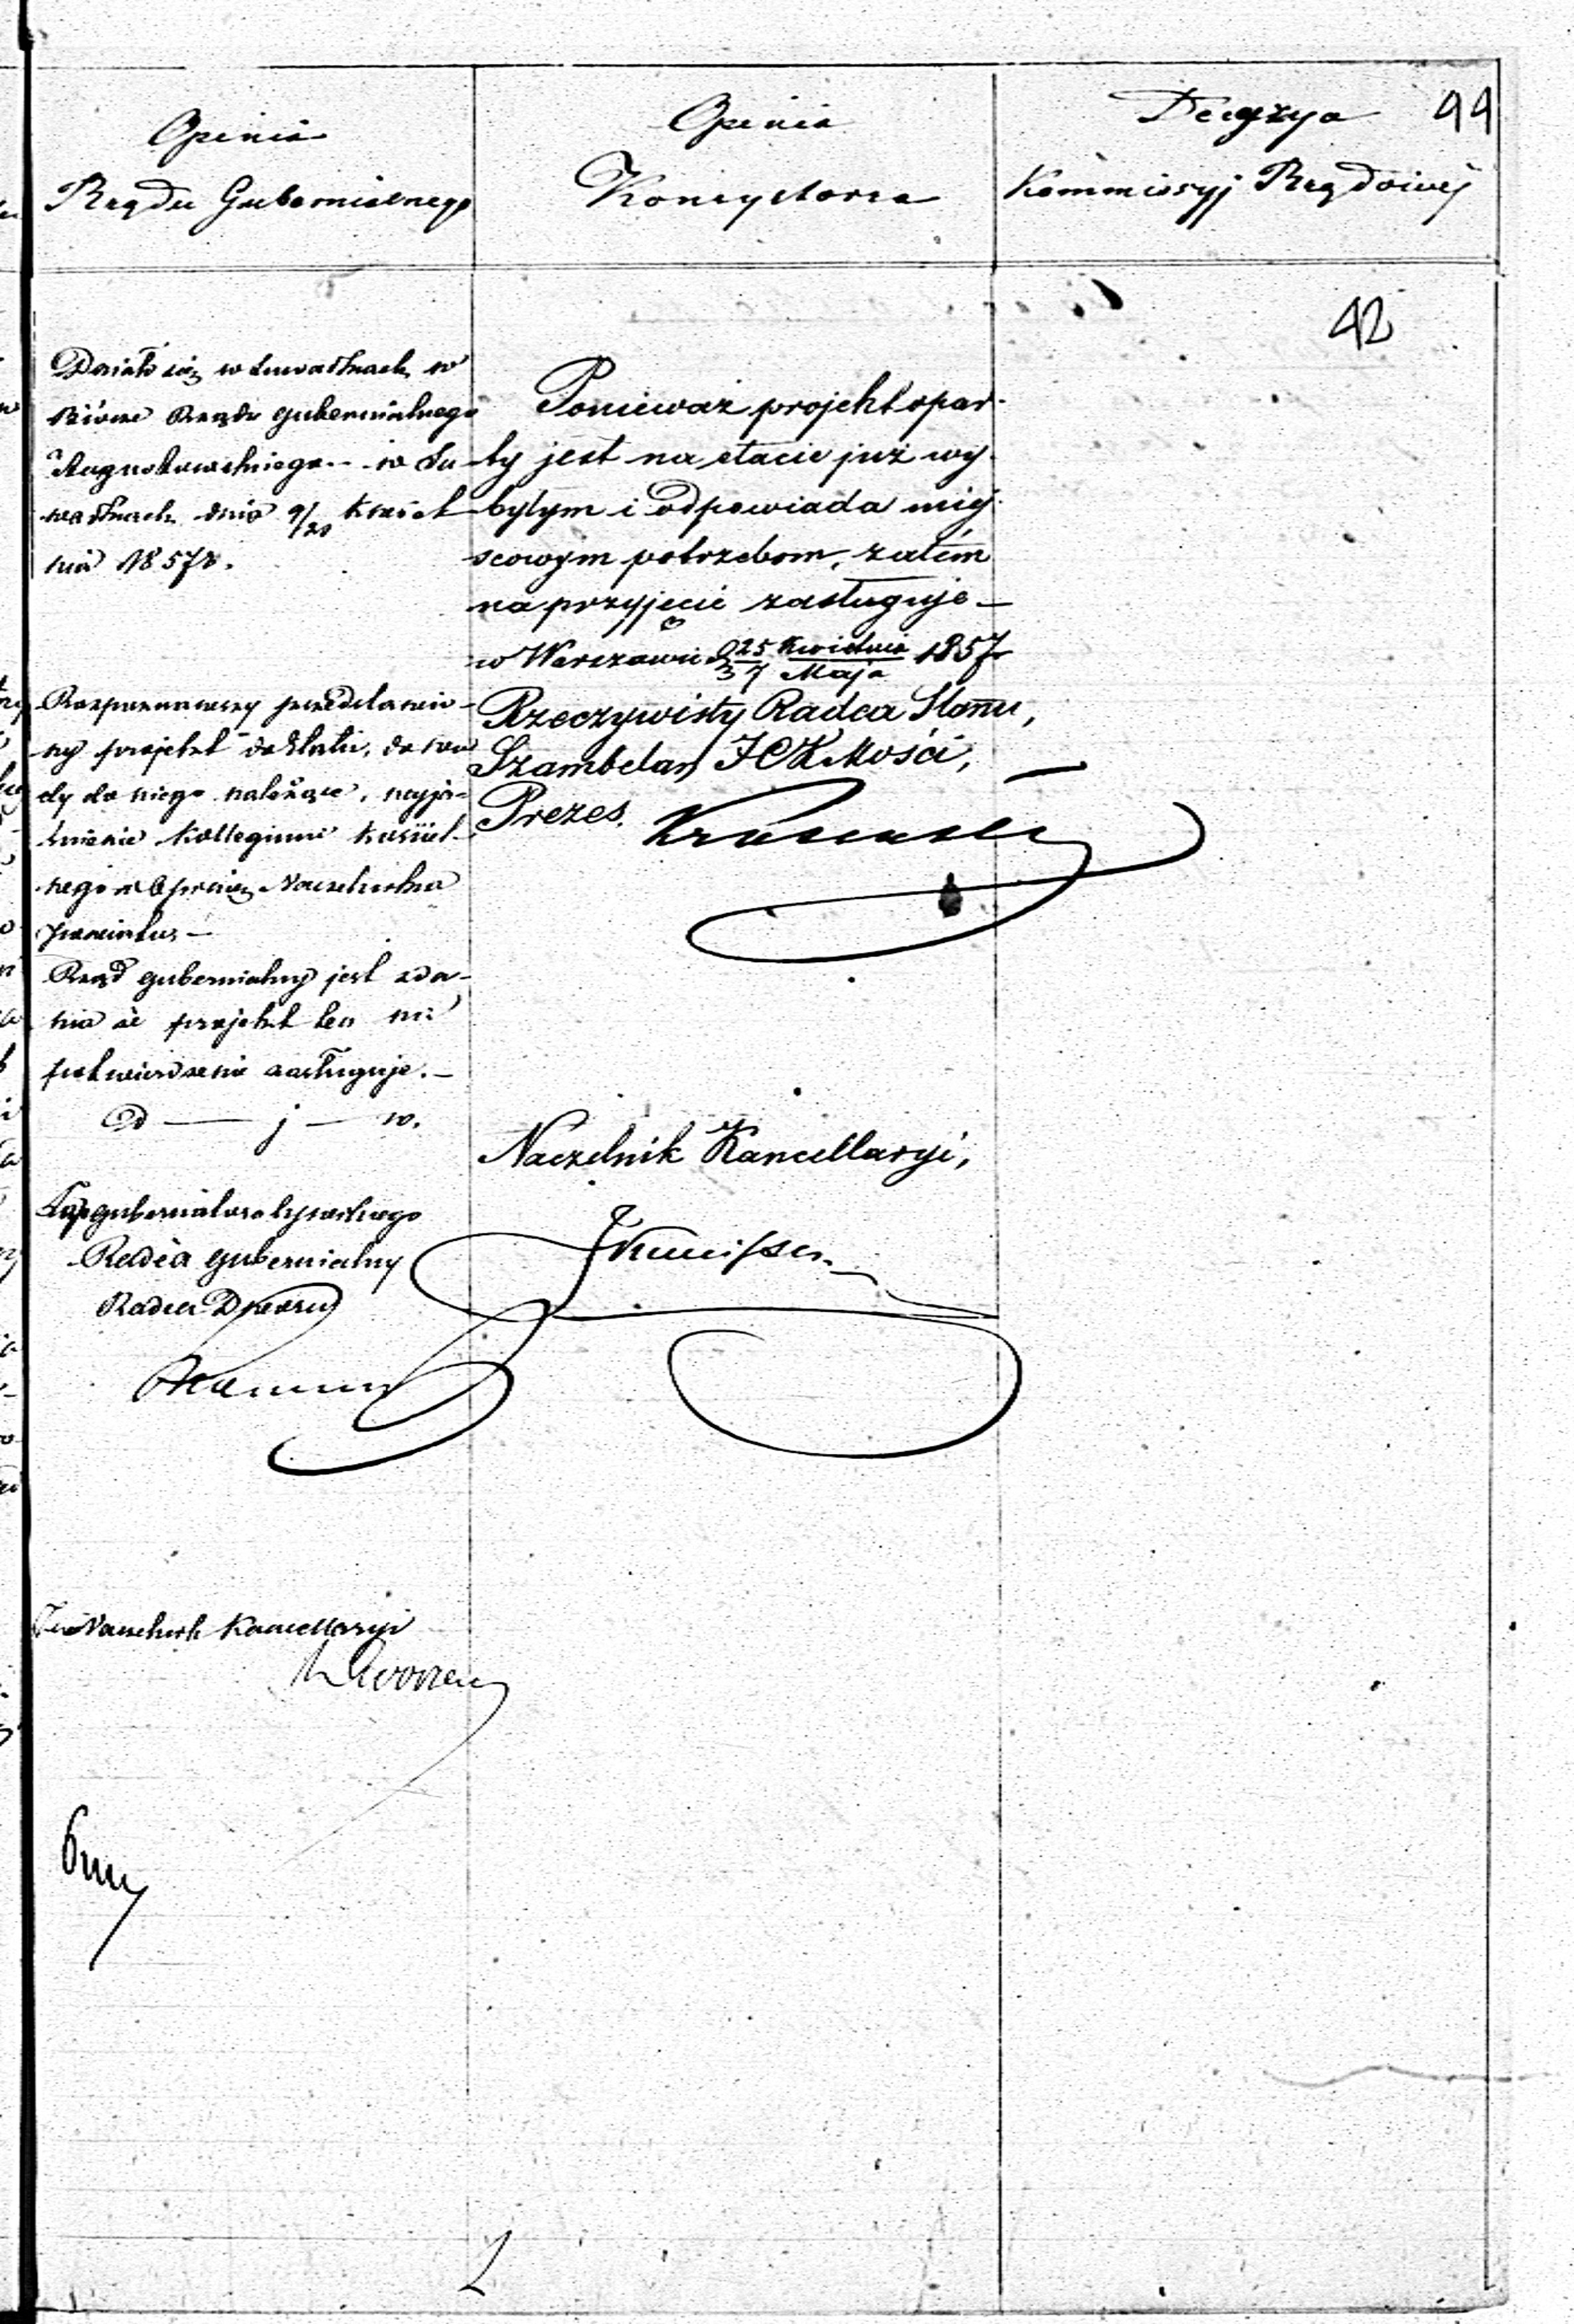 Opinia
Rządu Gubernialnego
Opinia
Konsystorza
Decyzya
Kommissyj Rządowej
44
42
Działo się w Suwałkach w
Biórze Rządu Gubernialnego
Augustowskiego w Su-
wałkach dnia 9/21 Kwiet
nia 1857r.
Rozpoznawszy przedstawio-
ny projekt do Etatu, dowo
dy do niego należące, wyja-
śnienie Kollegium Kościel-
nego i Opinią Naczelnika
Powiatu —
Rząd gubernialny jest zda-
nia że projekt ten na
potwierdzenie zasługuje. —
D — j — w.
gubernatora Cywilnego
Radca gubernialny
Radca Dworu
Naczelnik Kancellaryi
Ponieważ projekt opar-
ty jest na etacie już wy-
byłym i odpowiada miej-
scowym potrzebom, zatém
na przyjęcie zasługuje —
w Warszawie d 25 Kwietnia / 7 Maja 1857r
Rzeczywisty Radca Stanu,
Szambelan JCK Mości,
Prezes.
Naczelnik Kancellaryi,